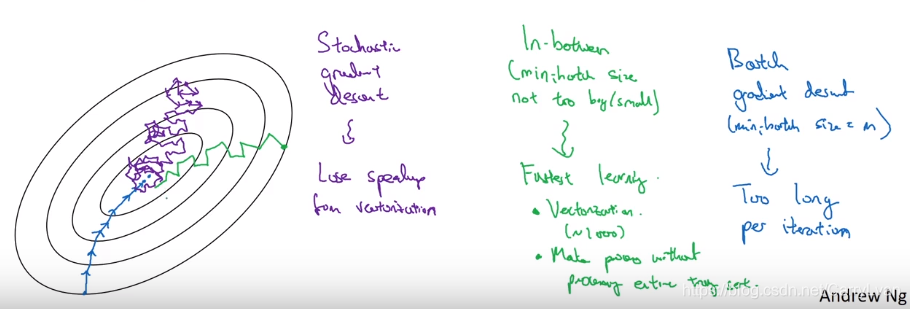 Stochastic
gradient
descent
Lose speedup
from vectorization
In-between
(mini-batch size
not too big/small)
Fastest learning.
• Vectorization.
(~1000)
• Make progress without
processing entire training set.
Batch
gradient descent
(mini-batch size = m)
Too long
per iteration
https://blog.csdn.net/
Andrew Ng